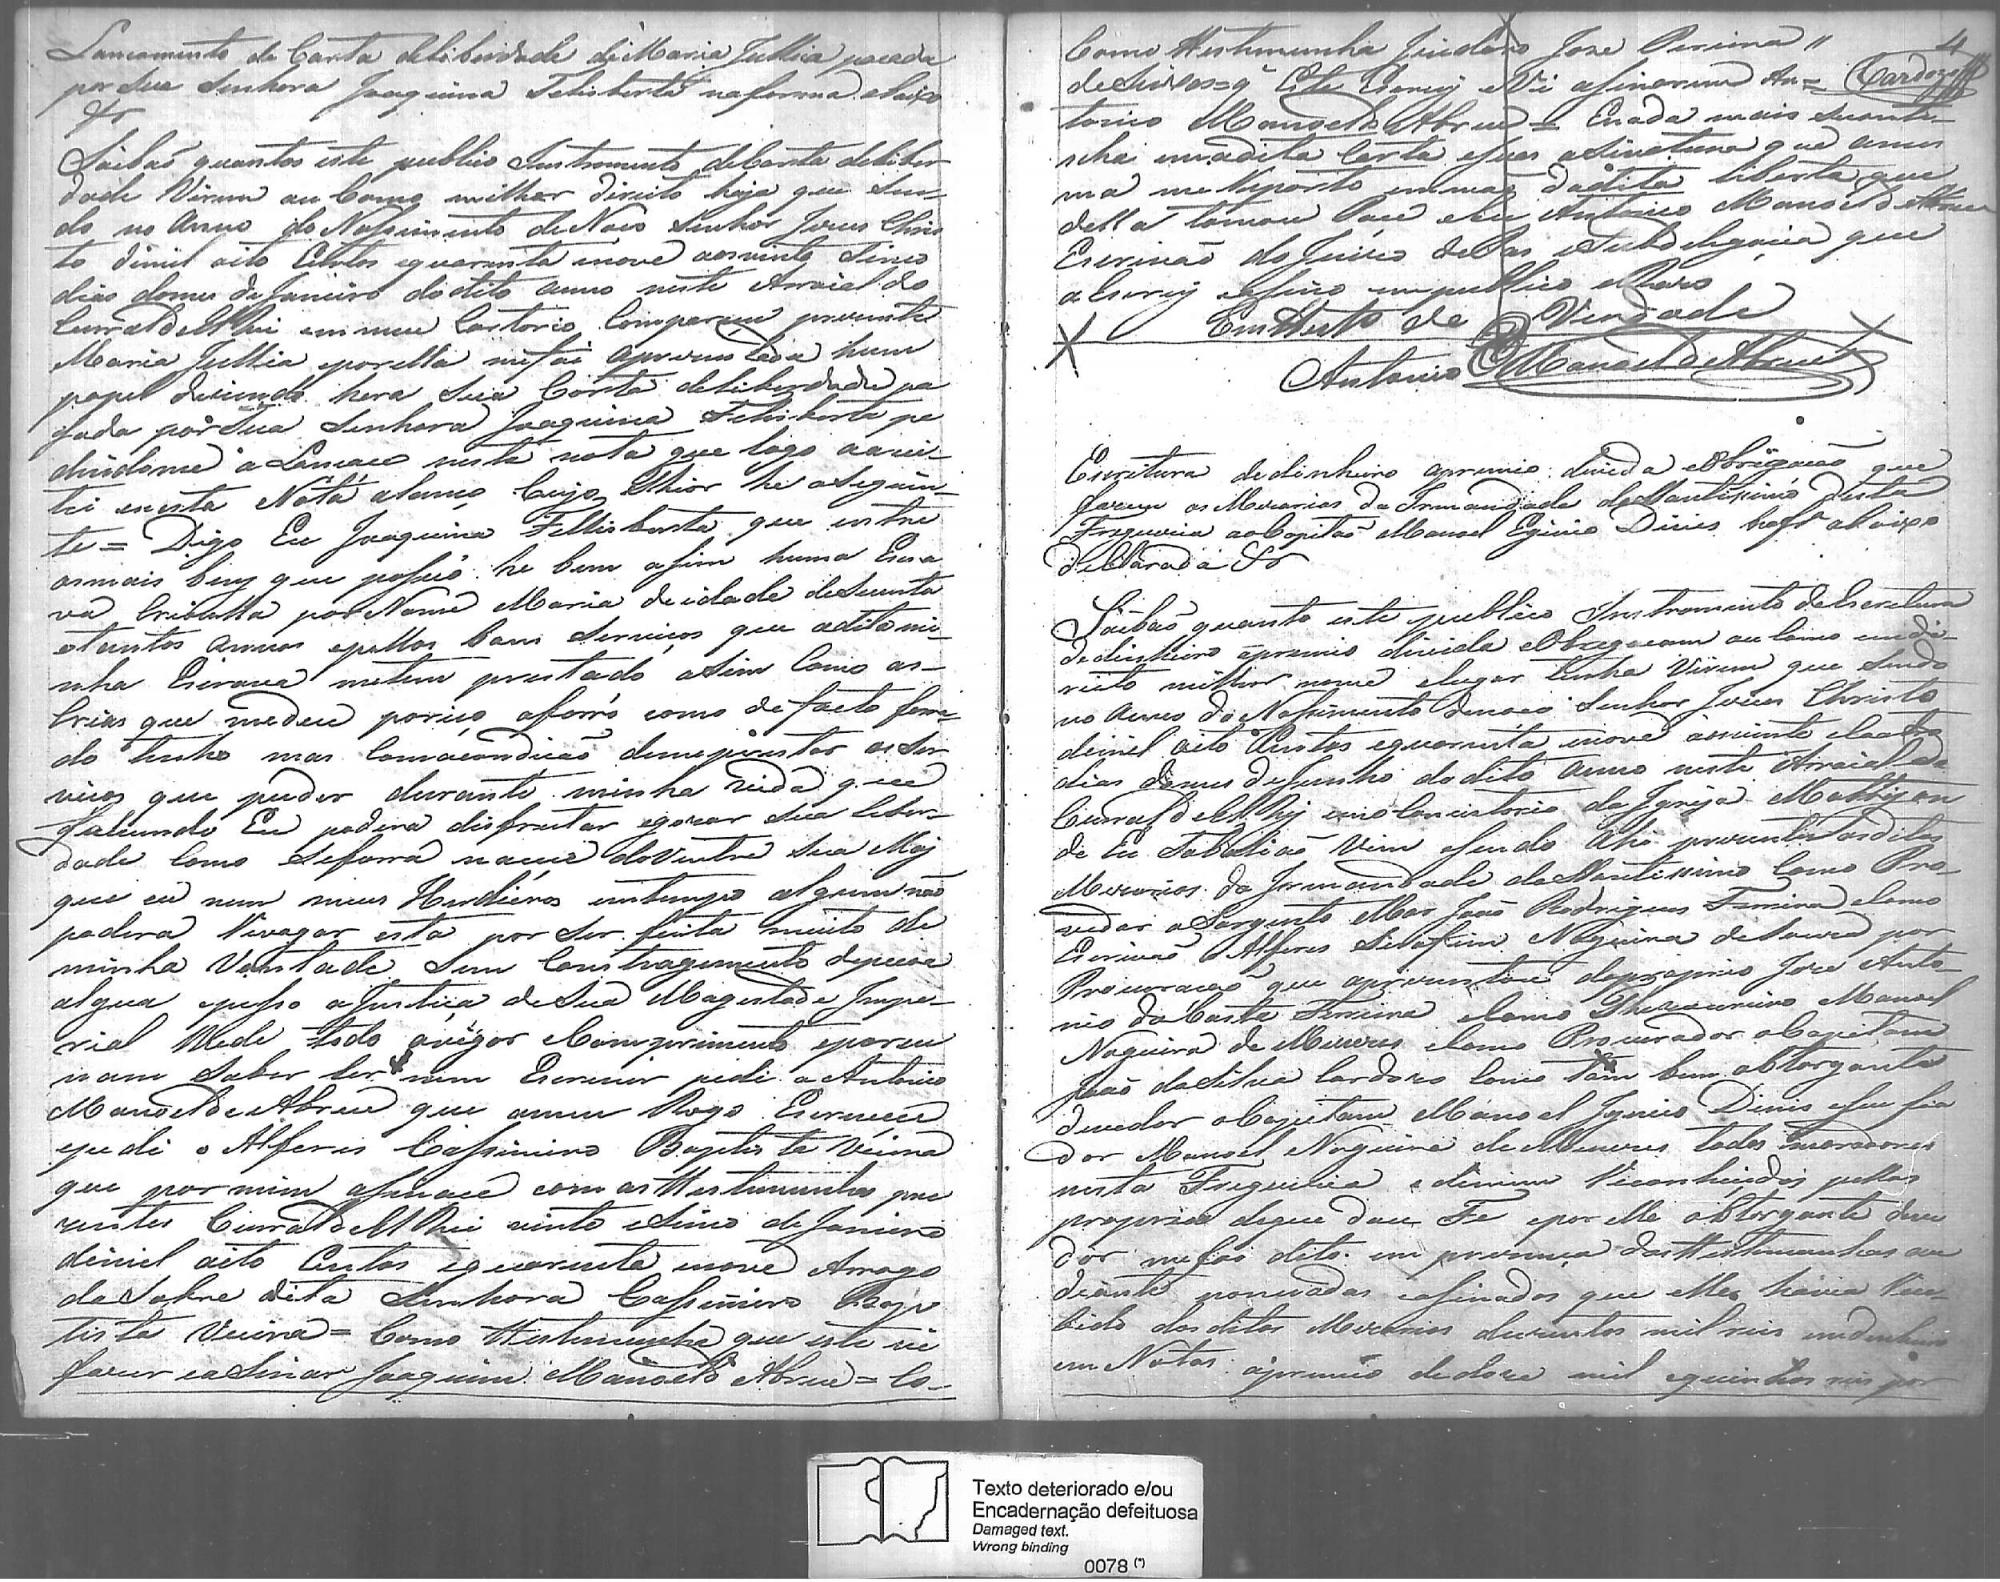 Lancamento de Carta deliberdade de Maria Jullia pasada
por sua Senhora Joaquina Felisberta na forma abaixo
&r
Saibaõ quantos este publico Instromento de Carta deliber
dade Virem ou Como milhor direito haja que Sen-
do no Anno do Nassimento de Noço Senhor Jezus Chris
to dimil oito Centos equarenta inove aos vinte Sinco
dias domes de Janeiro do dito anno neste Arraial do
Curral del Rei em meu Cartorio Compareceu prezente
Maria Jullia eporella mefoi aprezentada hum
papel dizendo hera Sua Carta deliberdade pa
sada por Sua Senhora Joaquina Felisberta pe
dindome a Lancace nesta nota que logo aacei-
tei enesta Nota alanço Cujo Thior he o Seguin-
te = Digo Eu Joaquina Fellisberta que entre
os mais bens que posuo he bem asim huma Escra
va Crioulla por Nome Maria de idade de Secenta
etantos annos epellos bons Serviços que a dita mi-
nha Escrava metem prestado asim Como as-
Crias que medeu porisso aforro como defacto forra-
do tenho mas Comacondicaõ demeprestar os Ser
viços que puder durante minha vida que
falecendo Eu podera disfrutar egozar sua liber-
dade Como Seforra nacece doVentre Sua Maj
que eu nem meus Herdeiros emtempo algum não
podera Revogar esta por Ser feita muito de
minha Vontade Sem Constragimento depeçoa
algua epesso a Justiça de Sua Magestade Impe-
rial lhede todo ovigor eComprimento eporeu
nam Saber Ler nem Escrever pedi a Antonio
Manoel de Abreu que ameu Rogo Escrevece
epedi o Alferes Cassimiro Baptista Vieira
que por mim asinace com as Testemunhas pre
zentes Curral del Rei vinte eSinco de Janeiro
dimil oito Centos equarenta enove Arrogo
da Sobre dita Senhora Cassimiro Bap
tista Vieira = Como Testemunha que este vi
fazer easinar Joaquim Manoel de Abreu = Co-
Como Testemunha Jose Pereira //
4
Cardozo
que Este Escrevy eVi asinarem An=
tonio Manoel de Abreu = Enada mais Secontei-
nha emadita Carta esuas asinaturas que ames
ma me Reporto em maõ dadita liberta que
della tomou Posse eEu Antonio Manoel de Abreu
Escrivaõ do Juizo de Pas eSubdelegacia que
aEscrevy easino em publico eRazo
Em Testo de Verdade
Antonio Manoel de Abreu
Escritura dedinheiro apremio divida eObrigacaõ que
fazem os Mezarios da Irmandade do Santissimo desta
Freguezia aoCapitaõ Manoel Eginio Dinis na fr.ª abaixo
declarada &r
Saibaõ quanto este publico Instromento de Escretura
dedinheiro apremio divida eObregacam ou Como emdi-
reito milhor nome elugar tenha Virem que Sendo
no Anno do Nassimento denoço Senhor Jezus Christo
demil oito Centos equarenta inove aosvinte
dias domes de Junho do dito anno neste Arraial do
Curral del Rej emoConcistorio da Igreja Matris on
de Eu Tabaliaõ Vim esendo Ahi prezentes os ditos
Mezarios da Irmandade do Santissimo Como Pro-
vedor o Sargento Mor Joaõ Rodrigues Ferreira eComo
Escrivaõ o Alferes Serafim Nogueira de por
Procuracaõ que aprezentou do proprio Joze Anto-
nio da Costa Ferreira eComo Thezoureiro Manoel
Nogueira de Menezes eComo Procurador oCapetam
Joaõ da Silva Cardozo Como Tam bem obtorgante
devedor oCapetam Manoel Iginio Dinis eseu fia
dor Manoel Nogueira de Menezes todos moradores
nesta Freguezia edimim Reconheçidos pellos
proprios deque dou Fé epor elle obtorgante deve
dor mefoi dito em prezença das Testemunhas ao
diante nomiadas easinadas que elle havia Rece-
bido dosditos Mezarios duzentos mil reis emdinheiro
em Notas apremio de doze mil equinhentos reis por
Texto deteriorado e/ou
Encadernação defeituosa
Damaged text.
Wrong binding
0078 (*)